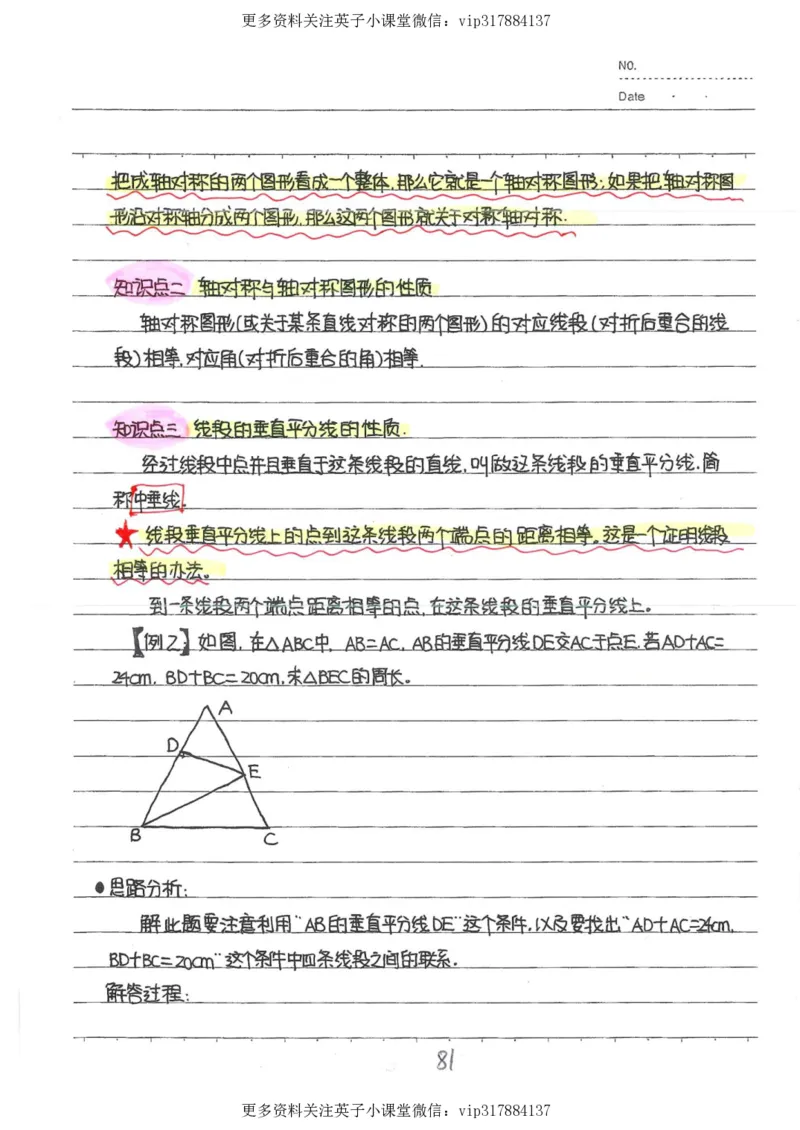 更多资料关注英子小课堂微信：vip317884137
NO.
Date
把成轴对称的两个图形看成一个整体,那么它就是一个轴对称图形;如果把轴对称图
形沿对称轴分成两个图形,那么这两个图形就关于对称轴对称.
知识点二 轴对称与轴对称图形的性质
轴对称图形(或关于某条直线对称的两个图形)的对应线段(对折后重合的线
段)相等,对应角(对折后重合的角)相等.
知识点三 线段的垂直平分线的性质.
经过线段中点并且垂直于这条线段的直线,叫做这条线段的垂直平分线.简
称中垂线.
★ 线段垂直平分线上的点到这条线段两个端点的距离相等。这是一个证明线段
相等的办法。
到一条线段两个端点距离相等的点,在这条线段的垂直平分线上。
【例2】如图,在△ABC中, AB=AC, AB的垂直平分线DE交AC于点E,若AD+AC=
24cm, BD+BC=20cm,求△BEC的周长。
A
D
E
B
C
●思路分析:
解此题要注意利用“AB的垂直平分线DE”这个条件,以及要找出“AD+AC=24cm,
BD+BC=20cm”这个条件中四条线段之间的联系.
解答过程:
81
更多资料关注英子小课堂微信：vip317884137